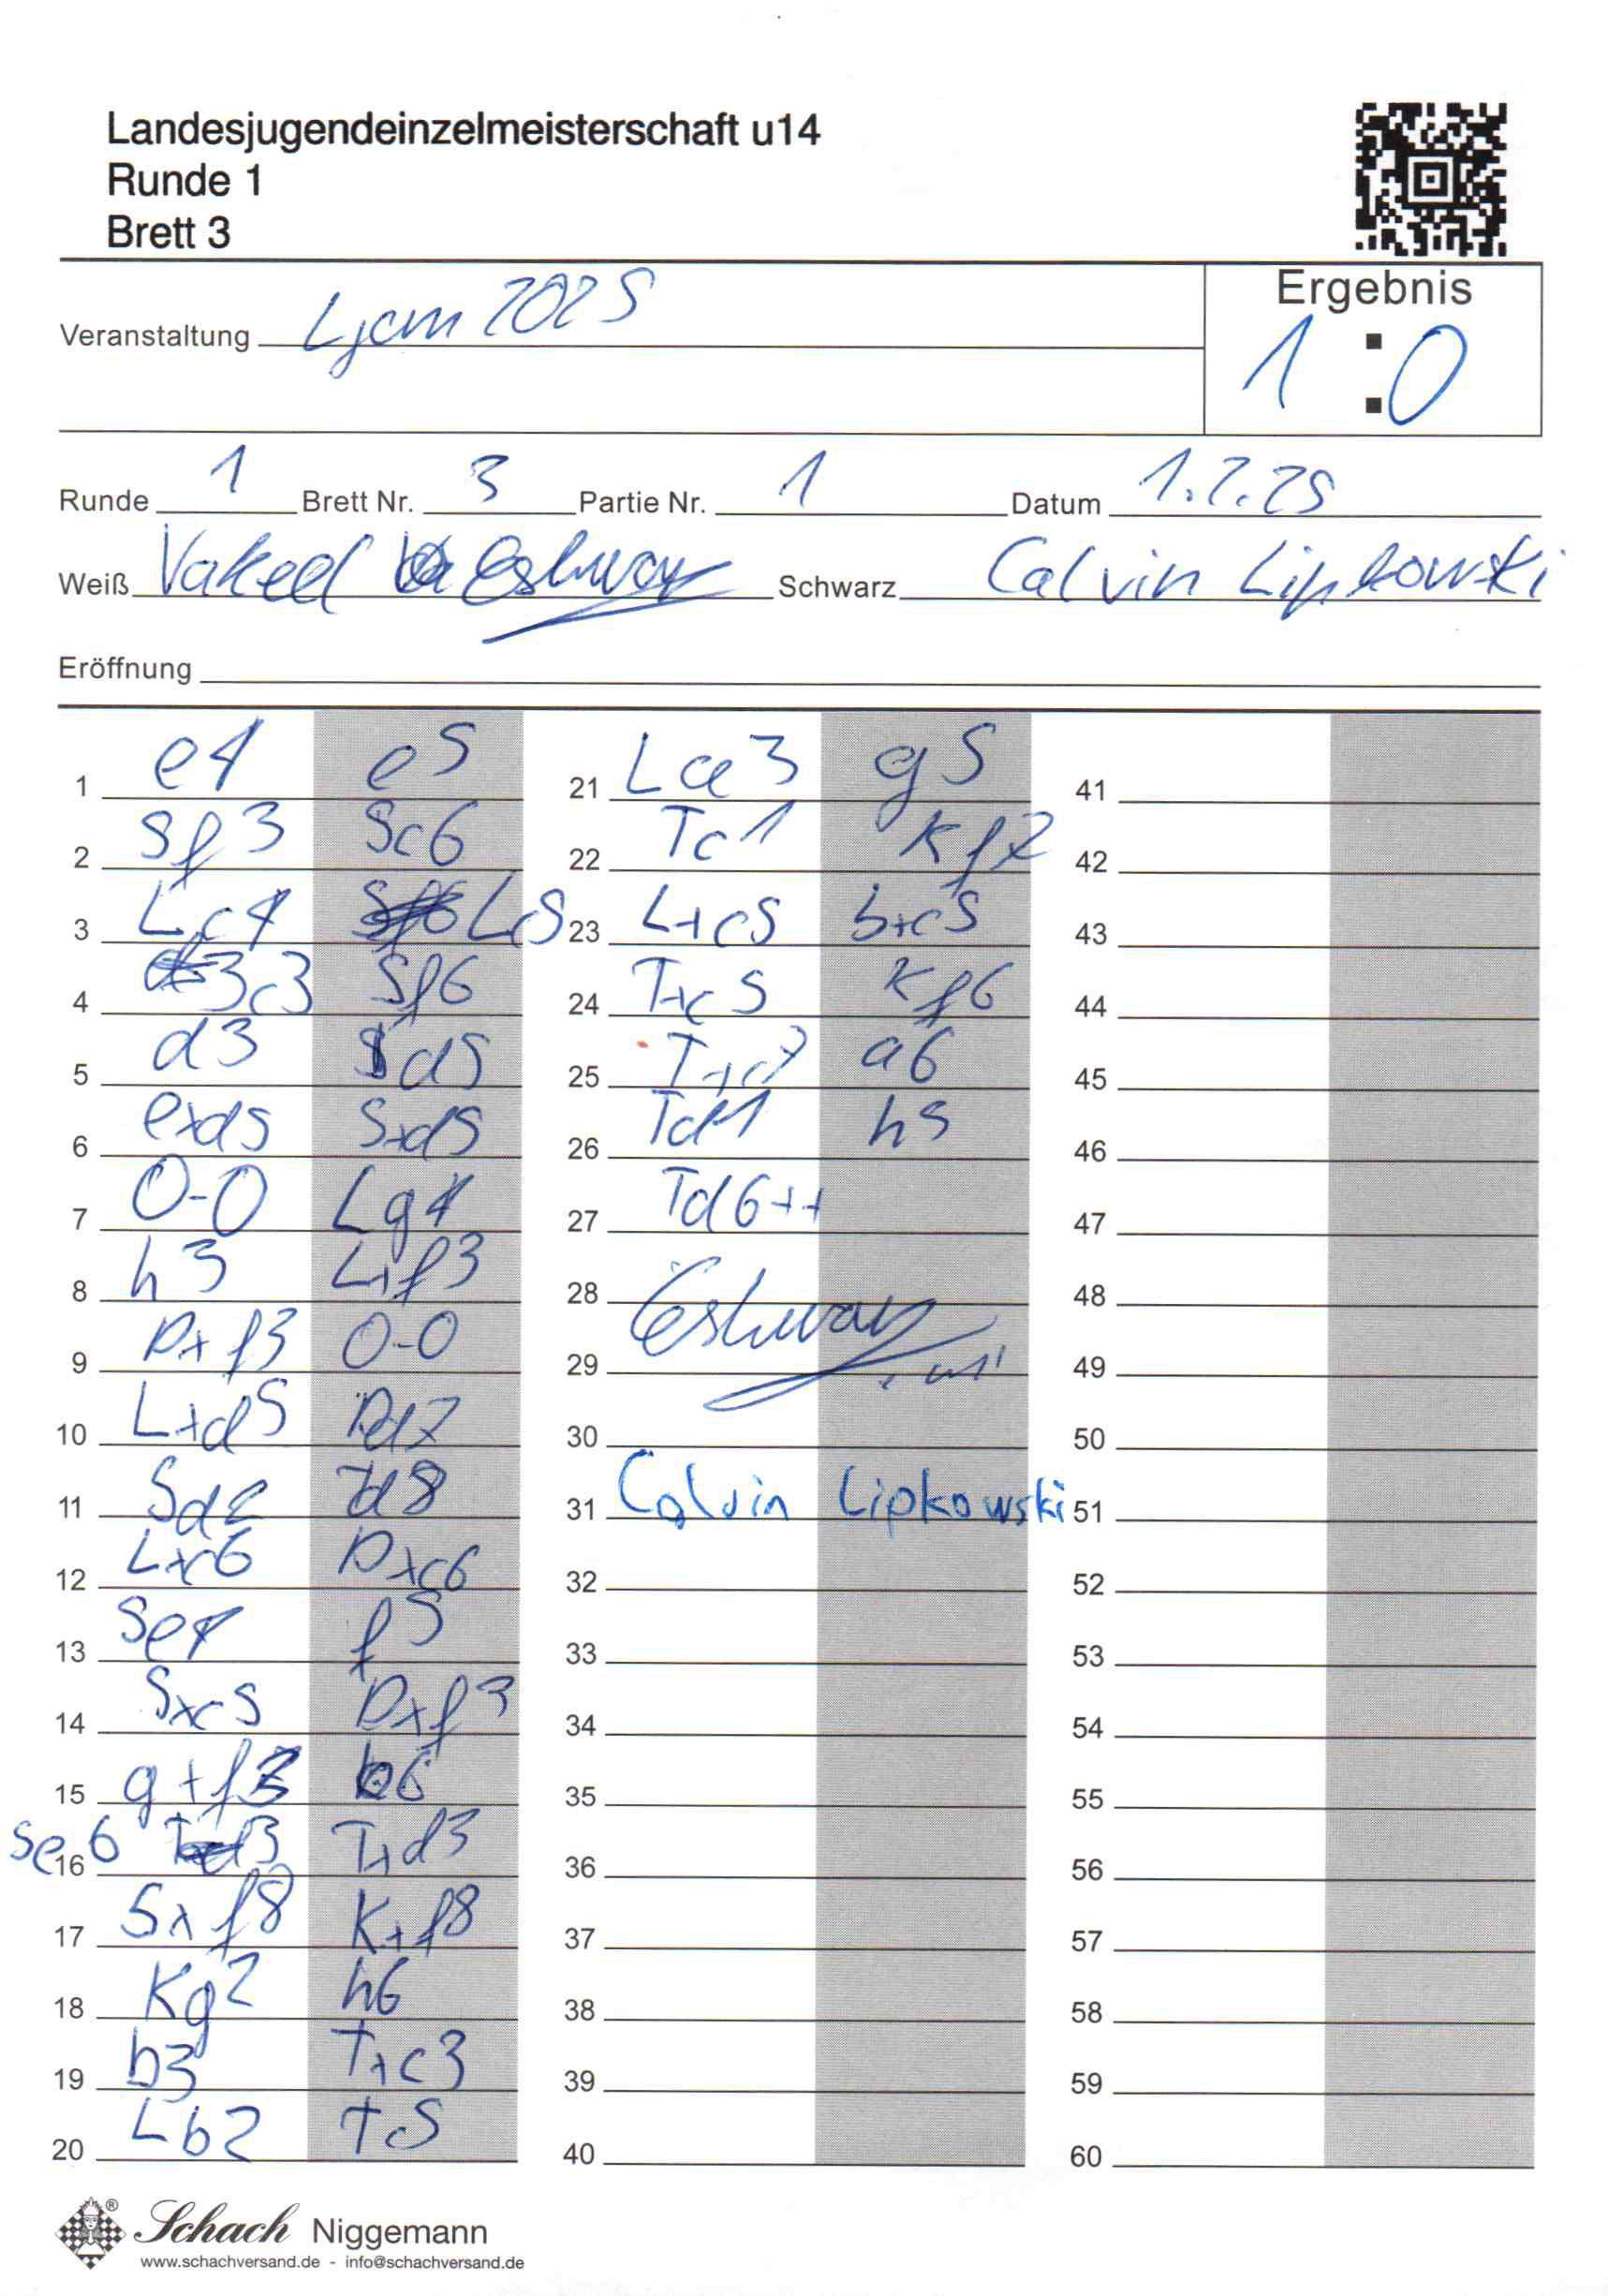 Landesjugendeinzelmeisterschaft u14
Runde 1
Brett 3
Veranstaltung Ljem 2025
Ergebnis
1 : 0
Runde 1 Brett Nr. 3 Partie Nr. 1 Datum 1.2.25
Weiß Vakeel Eshwar Schwarz Calvin Lipkowski
Eröffnung
1 e4 e5
2 Sf3 Sc6
3 Lc4 Lc5
4 c3 Sf6
5 d3 d5
6 exd5 Sxd5
7 0-0 Lg4
8 h3 Lxf3
9 Dxf3 0-0
10 Lxd5 Dd7
11 Sd2 Td8
12 Lxc6 Dxc6
13 Se4 f5
14 Sxc5 Dxf3
15 gxf3 b6
16 Se6 Txd3
17 Sxf8 Kxf8
18 Kg2 h6
19 b3 Txc3
20 Lb2 Tc5
21 La3 g5
22 Tc1 Kf7
23 Lxc5 bxc5
24 Txc5 Kf6
25 Txc7 a6
26 Td1 h5
27 Td6++
28 Eshwar
29
30
31 Calvin Lipkowski
32
33
34
35
36
37
38
39
40
41
42
43
44
45
46
47
48
49
50
51
52
53
54
55
56
57
58
59
60
Schach Niggemann
www.schachversand.de - info@schachversand.de